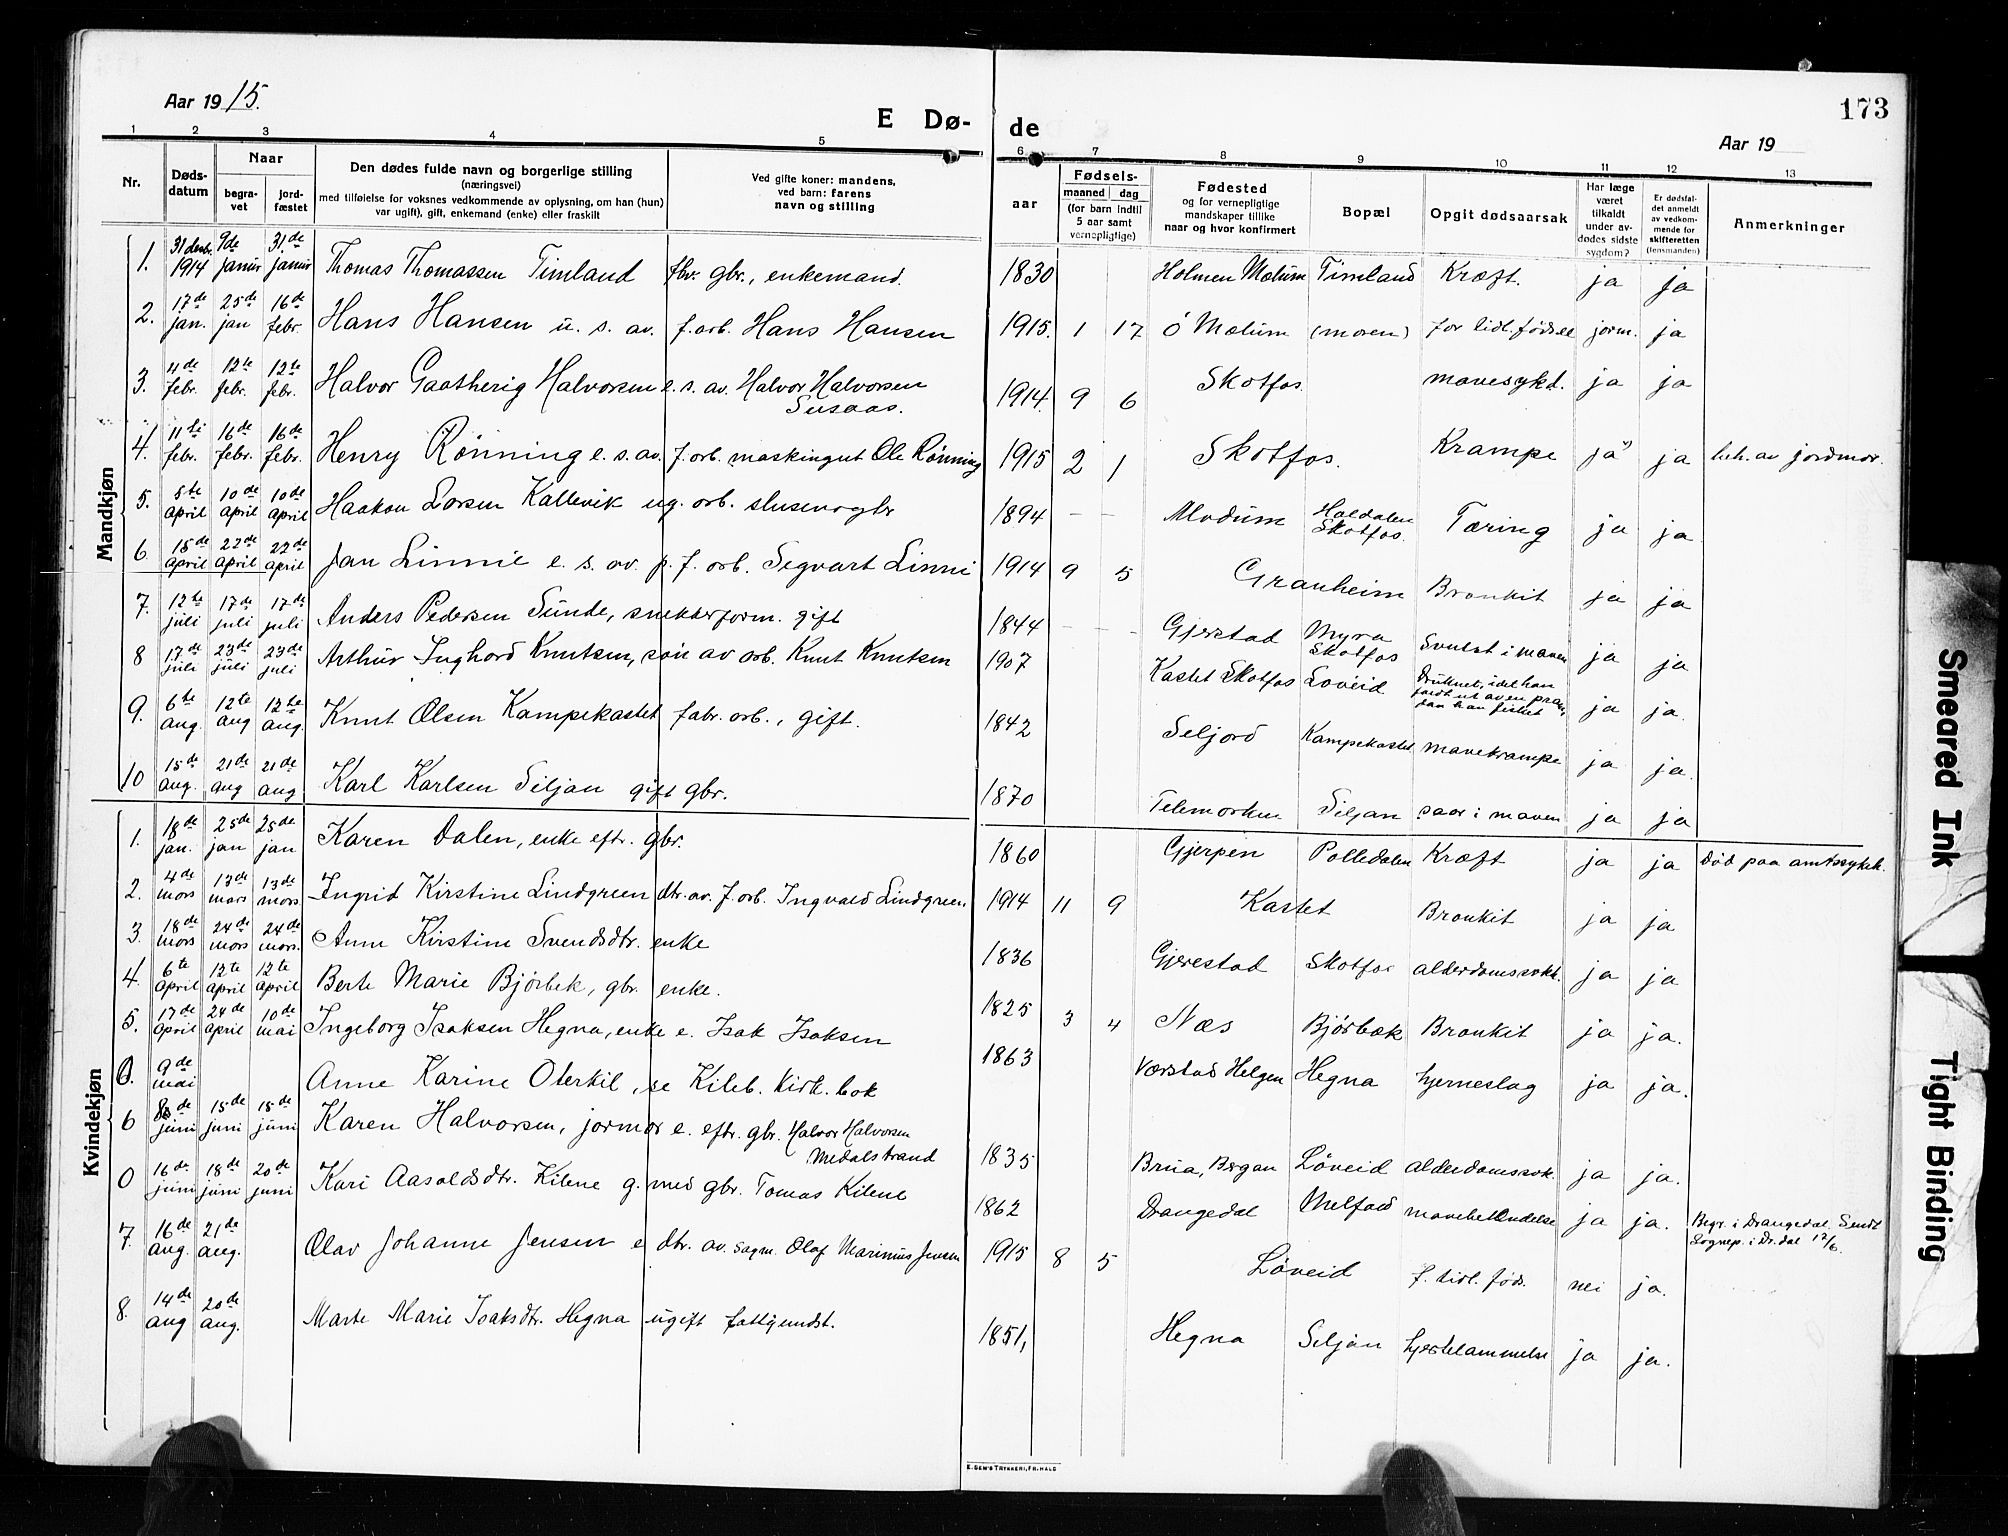 Aar 1915.
E Dø-de
173
Aar 19
1 2 3 4 5 6 7 8 9 10 11 12 13
Nr.
Døds-datum
Naar
begra-vet
jord-fæstet
Den dødes fulde navn og borgerlige stilling
(næringsvei)
med tilføielse for voksnes vedkommende av oplysning, om han (hun)
var ugift), gift, enkemand (enke) eller fraskilt
Ved gifte koner: mandens,
ved barn: farens
navn og stilling
aar
Fødsels-
maaned dag
(for barn indtil
5 aar samt
vernepligtige)
Fødested
og for vernepligtige
mandskaper tillike
naar og hvor konfirmert
Bopæl
Opgit dødsaarsak
Har læge
været
tilkaldt
under av-
dødes sidste
sygdom?
Er dødsfal-
det anmeldt
av vedkom-
mende for
skifteretten
(lensmanden)
Anmerkninger
Mandkjøn
1. 31 desbr. 1914 9de januar 31.de januar Thomas Thomassen Timland fhv. gbr., enkemand. 1830 Holmen Mælum Timland Kræft. ja ja
2. 17de jan. 25de jan 16de febr. Hans Hansen u. s. av. f. arb. Hans Hansen 1915. 1 17 ó Mælum (moren) for tidl. fødsel jorm. ja
3. 4de febr. 12te febr. 12te febr. Halvor Halvorsen e. s. av. Halvor Halvorsen 1914. 9 6 Skotfos. mavesykd. ja ja
4. 11te febr. 16de febr. 16de febr. Henry Rønning e. s. av. f. arb. maskingut Ole Rønning 1915 2 1 Skotfos. Krampe ja ja beh. av jordmor.
5. 5te april 10de april 10de april Haakon Larsen Kallevik ug. arb. slusevogter 1894 - - Modum Haldalen Skotfos. Tæring ja ja
6 15de april 22de april 22de april Jan Linnie e. s. av. p. f. arb. Segvart Linni 1914 9 5 Granheim Bronkit ja ja
7. 12te juli 17de juli 17de juli Anders Pedersen Sunde, snekkerform. gift 1844 - - Gjerstad Myra Skotfos Svulst i maven ja ja
8 17de juli 23de juli 23de juli Arthur Inghard Knutsen, søn av arb. Knut Knutsen 1907 Kastet Skotfos Løveid Druknet, idet han faldt ut av en pram, da han fisket ja ja.
9. 6te aug. 12te aug 12te aug. Knut Olsen Kampekastet fabr. arb., gift. 1842 Seljord Kampekastet mavekrampe ja ja.
10 15de aug. 21de aug 21de aug Karl Karlsen Siljan gift gbr. 1870 Telemarken Siljan saar i maven ja ja
Kvindekjøn
1. 18de jan. 25de jan 25de jan Karen Dalen, enke eftr. gbr. 1860 Gjerpen Polledalen Kræft ja ja Død paa amtssykeh.
2. 4de mars 13de mars 13de mars Ingrid Kirstine Lindgreen dtr. av. f. arb. Ingvald Lindgreen. 1914 11 9 Kastet Bronkit ja ja
3. 18de mars 24de mars 24de mars. Anne Kirstine Svendsdtr. enke 1836 Gjerestad Skotfos alderdomssvkk. ja ja
4. 6te april 12te april 12te april Berte Marie Bjørbek, gbr. enke. 1825 3 4 Næs Bjørbæk Bronkit ja ja.
5. 17de april 24de april 10de mai Ingeborg Isaksen Hegna, enke e. Isak Isaksen 1863 Værstad Helgen Hegna hjerneslag ja ja.
0. 9de mai Anne Karine Oterkil, se Kileb. Kirk. bok
6 juni 15de juni 15de juni Karen Halvorsen, jormor e. eftr. gbr. Halvor Halvorsen Medalstrand 1835 Brua, Bergan Løveid alderdomssvk. ja ja.
0 16de juni 18de juni 20de juni Kari Aasoldsdtr. Kilene g. med gbr. Tomas Kilene 1862 Drangedal Melfald mavebetændelse ja ja. Begr. i Drangedal. Sendt Sognep. i Dr.dal 12/6.
7. 16de aug. 21de aug. Olav Johanne Jensen e dtr. av. sagm. Olaf Marinius Jensen 1915 8 5 Løveid f. tidl. føds. nei ja.
8. 14de aug 20de aug. Marte Marie Isaksdtr. Hegna ugift fattigundst. 1851, Hegna Siljan hjertelammelse ja ja.
E. SEM'S TRYKKERI, FR.HALD
Smeared Ink
Tight Binding